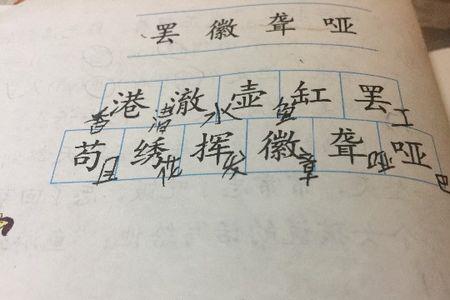 罢 徽 聋 哑
香港 清澈 水壶 鱼缸 罢工
苟 绣 挥发 徽章 聋 哑巴